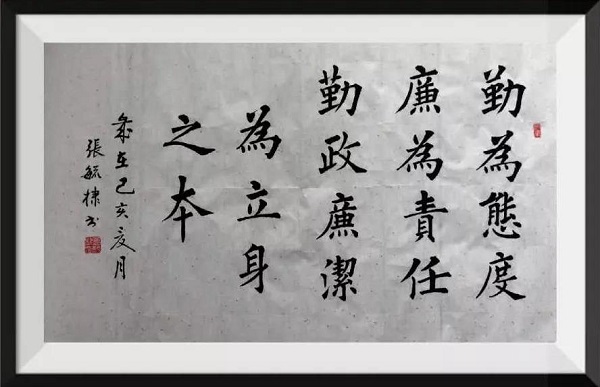 勤為態度
廉為責任
勤政廉潔
為立身
之本
歲在己亥夏月
張毓棣书